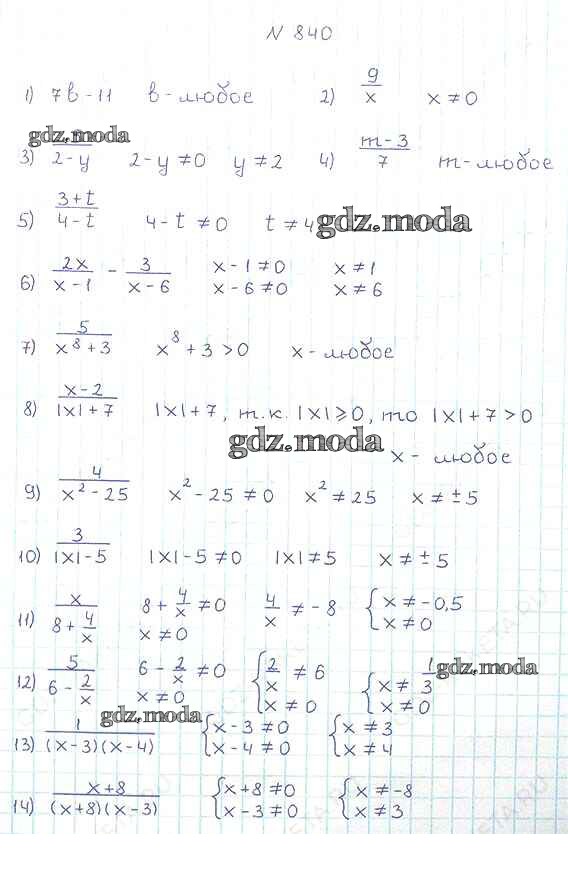 N 840
1) 7b - 11 b - любое 2) 9/x x ≠ 0
gdz.moda
3) /2 - y 2 - y ≠ 0 y ≠ 2 4) m - 3/7 m - любое
5) 3 + t/4 - t 4 - t ≠ 0 t ≠ 4 gdz.moda
6) 2x/x - 1 - 3/x - 6 x - 1 ≠ 0 x ≠ 1
x - 6 ≠ 0 x ≠ 6
7) 5/x⁸ + 3 x⁸ + 3 > 0 x - любое
8) x - 2/|x| + 7 |x| + 7, т.к. |x| ⩾ 0, то |x| + 7 > 0
gdz.moda
x - любое
9) 4/x² - 25 x² - 25 ≠ 0 x² ≠ 25 x ≠ ± 5
10) 3/|x| - 5 |x| - 5 ≠ 0 |x| ≠ 5 x ≠ ± 5
11) x/8 + 4/x 8 + 4/x ≠ 0 4/x ≠ - 8 { x ≠ - 0,5
x ≠ 0 x ≠ 0
12) 5/6 - 2/x 6 - 2/x ≠ 0 { 2/x ≠ 6 { x ≠ 1/3 gdz.moda
x ≠ 0 x ≠ 0 x ≠ 0
gdz.moda
13) 1/(x - 3)(x - 4) { x - 3 ≠ 0 { x ≠ 3
x - 4 ≠ 0 x ≠ 4
14) x + 8/(x + 8)(x - 3) { x + 8 ≠ 0 { x ≠ - 8
x - 3 ≠ 0 x ≠ 3